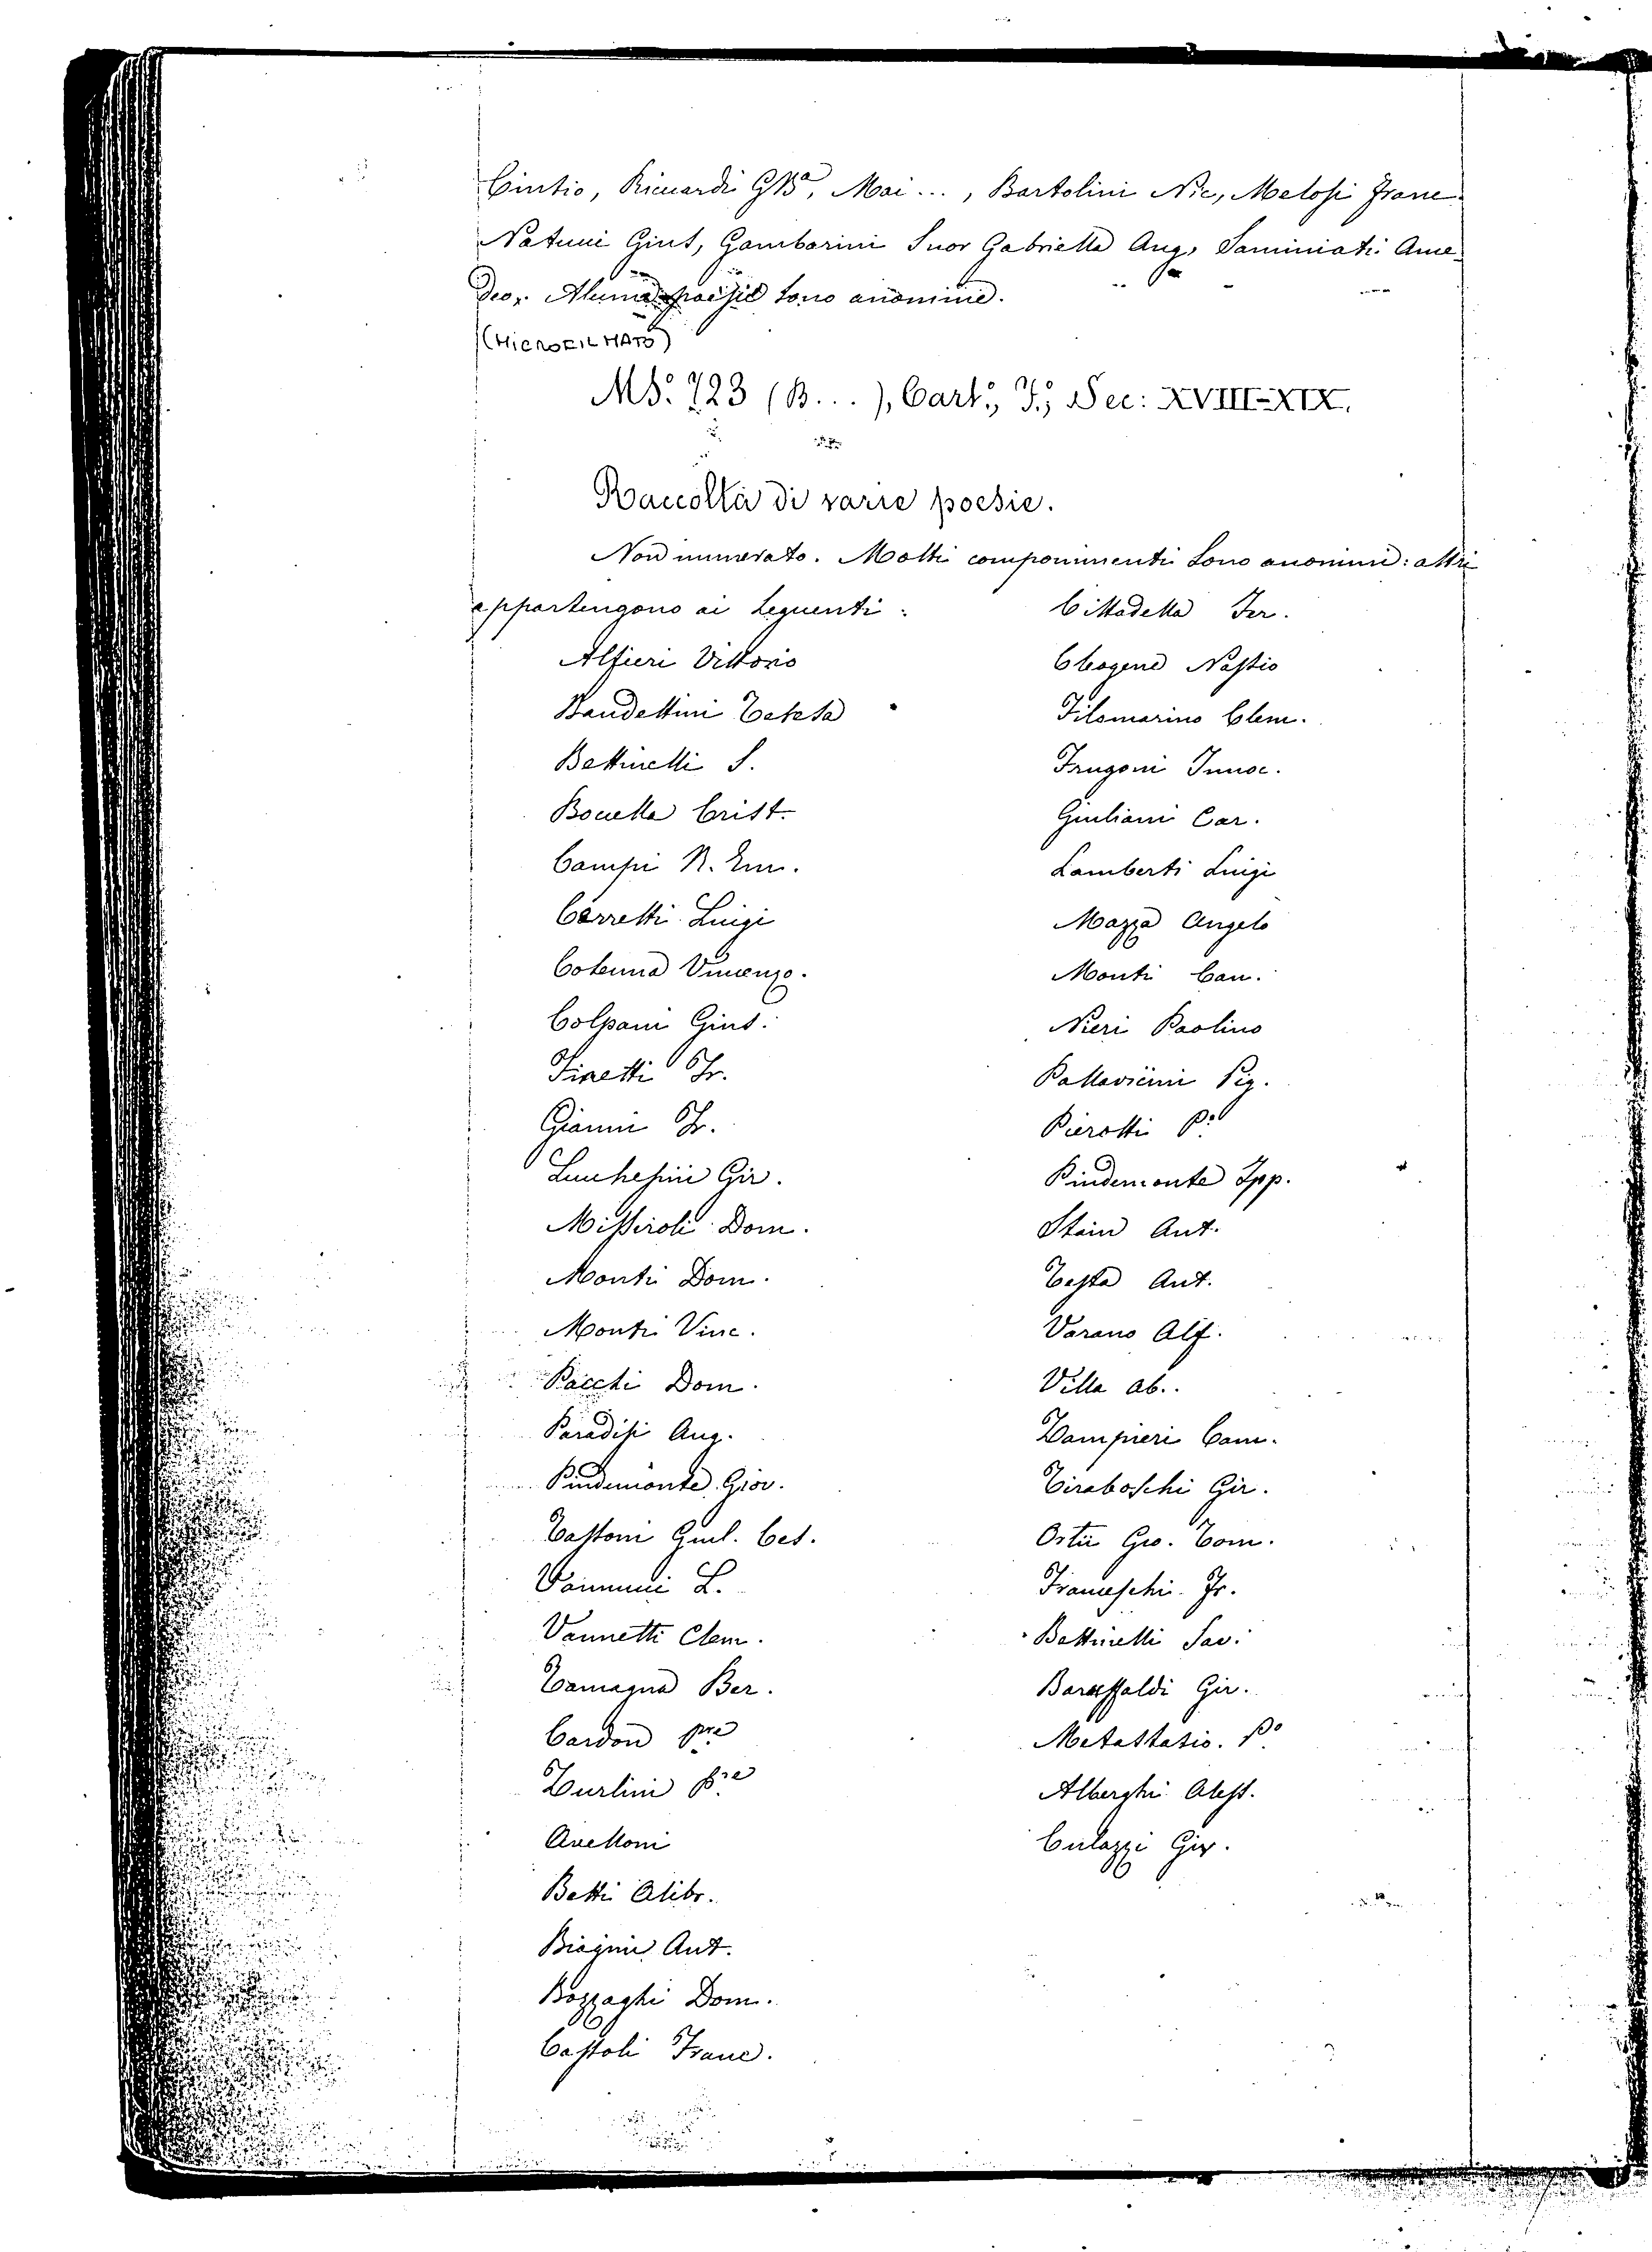 Cintio, Ricciardi GBa, Mai..., Bartolini Nic, Melosi Franc.
Natuni Gius, Gambarini Suor Gabriella Aug, Saminiati Ame-
deo. Alcune poesie sono anonime.
(MICROFILMATO)
MS. 723 (B...), Cart., F., Sec: XVIII-XIX.
Raccolta di varie poesie.
Non numerato. Molti componimenti sono anonimi: altri
appartengono ai seguenti:
Alfieri Vittorio
Bandettini Teresa
Bettinelli S.
Boccella Crist.
Campi R. Em.
Cerretti Luigi
Cotenna Vincenzo.
Colpani Gius.
Finetti Fr.
Gianni Fr.
Lucchesini Gir.
Missiroli Dom.
Monti Dom.
Monti Vinc.
Pacchi Dom.
Paradisi Aug.
Pindemonte Giov.
Tassoni Giul. Ces.
Vannini L.
Vannetti Clem.
Zamagna Ber.
Cardon pre
Zurlini pre
Avelloni
Betti Alibr.
Biagini Ant.
Bozzaghi Dom.
Cassoli Franc.
Cittadella Fer.
Cleogene Nassio
Filomarino Clem.
Frugoni Innoc.
Giuliani Car.
Lamberti Luigi
Mazza Angelo
Monti Can.
Nieri Paolino
Pallavicini Sig.
Pierotti
Pindemonte Ipp.
Stain Ant.
Testa Ant.
Varano Alf.
Villa ab.
Zampieri Cam.
Tiraboschi Gir.
Ostii Gio. Tom.
Franceschi Fr.
Bettinelli Sav.
Baruffaldi Gir.
Metastasio. Po
Alberghi Aless.
Culazzi Gir.